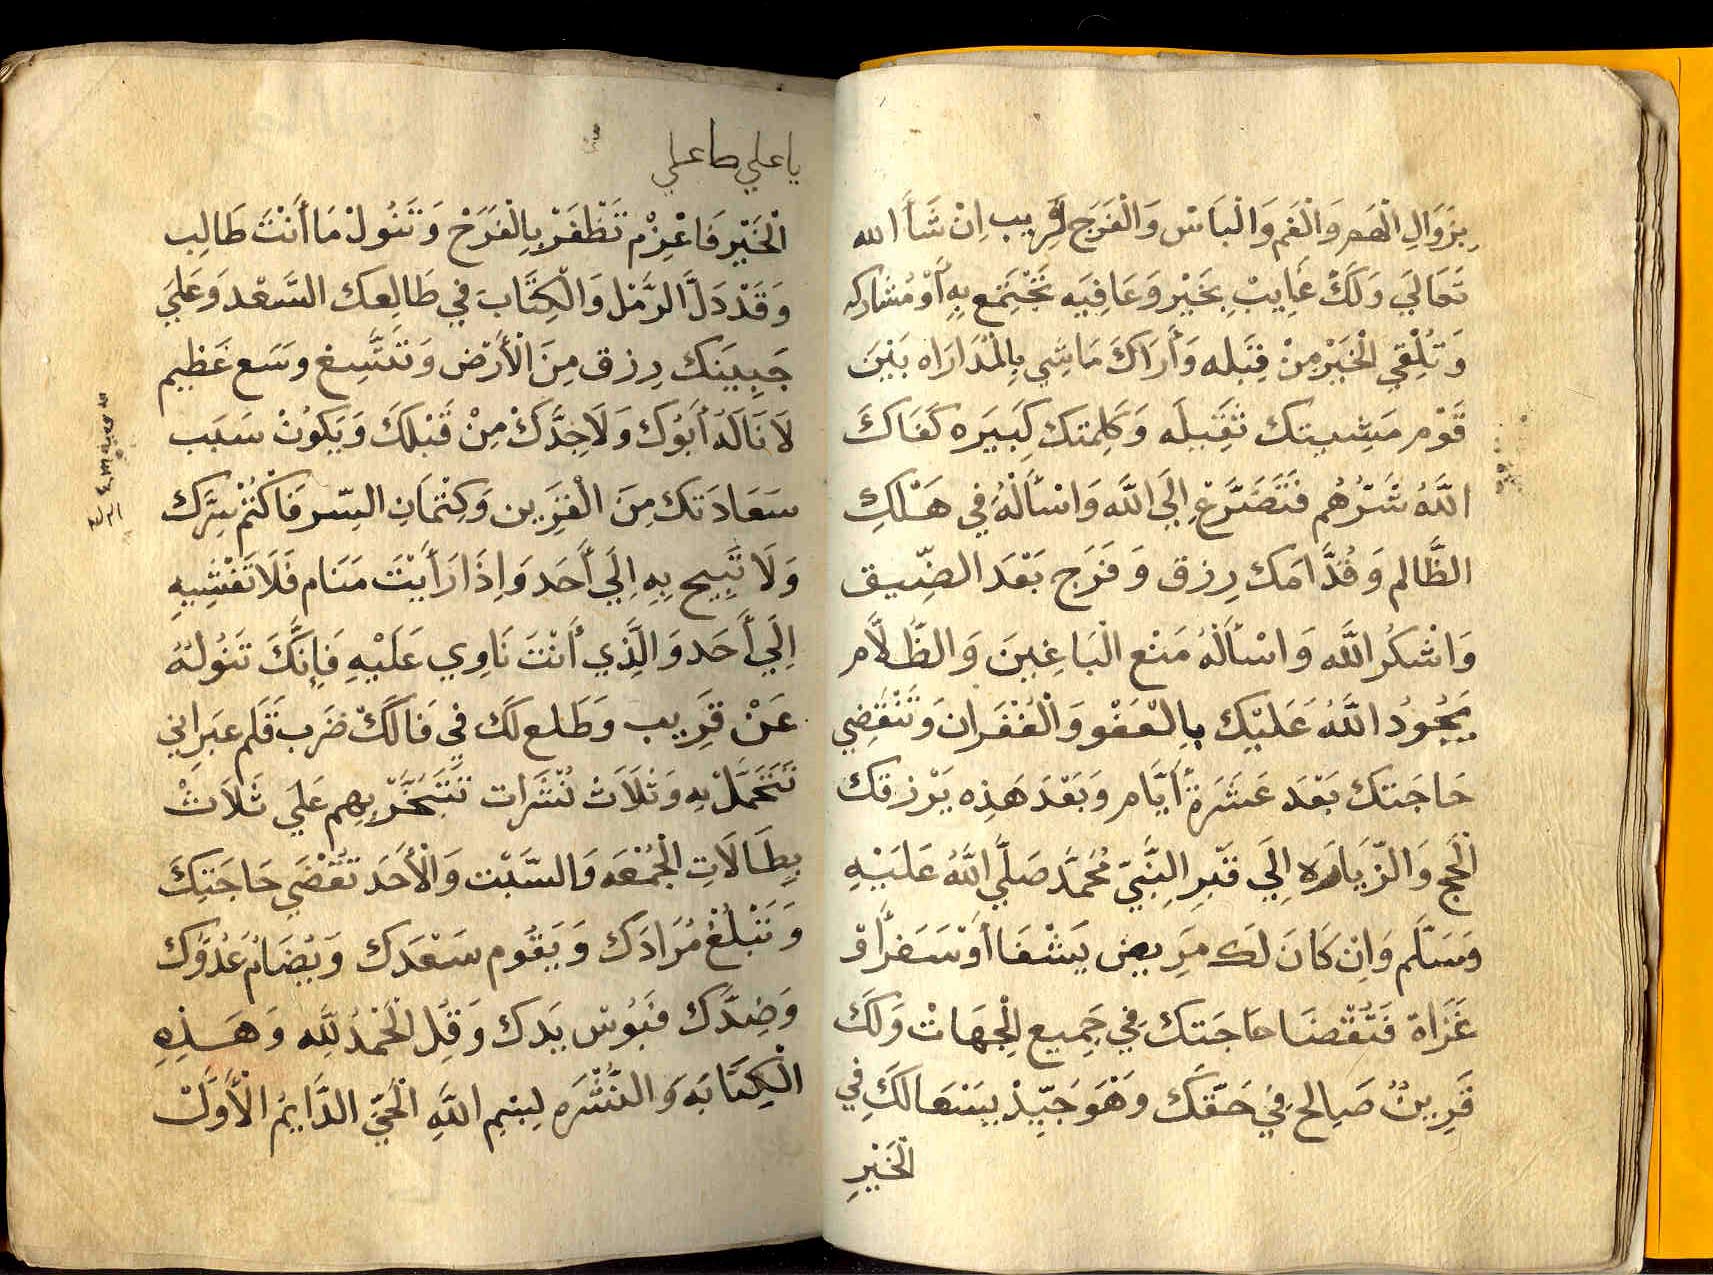 بِزَوَالِ الْهَم وَالْغَم وَالْبَاسْ وَالْفَرَج قَرِيب اِنْ شَأَ الله
تَعَالَي وَلَكَ غَايِبْ بِخَيْر وَعَافِيَه تَجْتَمِع بِهِ أَوْ مُشَاركه
وَتُلْقِي الْخَيْر مِنْ قِبَله وَأَرَاكَ مَاشِي بِالْمُدَارَاه بَيْنَ
قَوْم مَشِيتك ثَقِيلَه وَكَلِمتك كَبِيَره كَفَاكَ
اللَّهُ شَرُّهُم فَتَضَرَّعْ اِلَى اللَّه وَاسْأَلْهُ فِي هَلْكِ
الظَّالم وَقُدَّامَك رِزق وَفَرَج بَعْدَ الضِّيق
وَاشْكُر اللَّه وَاسْأَلْهُ مَنْع الْبَاغِيِينَ وَالظُّلَّام
يَجُودُ اللَّهُ عَلَيْك بِالْعَفْو وَالْغُفْرَان وَتَنْقَضِي
حَاجَتك بَعْدَ عَشَرَةُ أَيَّام وَبَعْدَ هَذِه يَرْزقك
الْحَج وَالزِّيَارَه اِلَي قَبْرِ النَّبِيّ مُحَمَّد صَلَّي اللَّهُ عَلَيْهِ
وَسَلَّم وَاِنْ كَانَ لَك مَرِيض يَشْفَا أَوْ سَفَرْ أَوْ
غَزَاة فَتُقْضَا حَاجَتك فِي جَمِيع الْجِهَاتْ وَلَكَ
قَرِينٌ صَالِح فِي حَقّكَ وَهْوَ جَيِّدْ يِسْعَا لَكَ فِي
الْخَيْرِ
يا علي يا علي
الْخَيْر فَاعْزِمْ تَظْفَرْ بِالْفَرَحْ وَتَنُولْ مَا أَنْتَ طَالِب
وَقَدْ دَلَّ الرَّمْل وَالْكِتَّاب فِي طَالِعِك السَّعْد وَعَلَيَ
جَبِينَك رِزق مِنَ الْأَرْض وَتَتَّسِعْ وَسَع عَظِيم
لَا نَالَهُ أَبُوك وَلَا جِدَّكْ مِنْ قَبْلكَ وَيَكُونْ سَبَب
سَعَادَتك مِنَ الْقَرِين وَكِتْمَان السِّر فَاكْتُمْ سِرَّك
وَلَا تَبِيح بِهِ اِلَي أَحَد وَاِذَا رَأَيْتَ مَنَام فَلَا تَفْشِيهِ
اِلَي أَحَد وَالَّذِي أَنْتَ نَاوِي عَلَيْهِ فَإِنَّكَ تَنُولهُ
عَنْ قَرِيب وَطَلع لَك فِي فَالَكْ ضَرب قَلَم عَبرانِي
تَتَحَمَّلْ بِهِ وَثَلَاثْ نُشَرات تَتَبَخَّر بِهِم عَلَي ثَلَاثْ
بِطَالَاتِ الْجُمْعَه وَالسَّبْت وَالْأَحَد تُقْضَي حَاجَتِكَ
وَتَبْلُغْ مُرَادَك وَيَقُوم سَعْدَك وَيُضَامْ عَدُوَّك
وَضِدَّك فَبُوسْ يَدك وَقُل الْحَمْدُ لِلَّه وَهَذِهِ
الْكِتَابَه وَالنُّشْرَه لِبسْمِ اللَّهِ الْحَيّ الدَّايِمْ الْأَوَّلْ